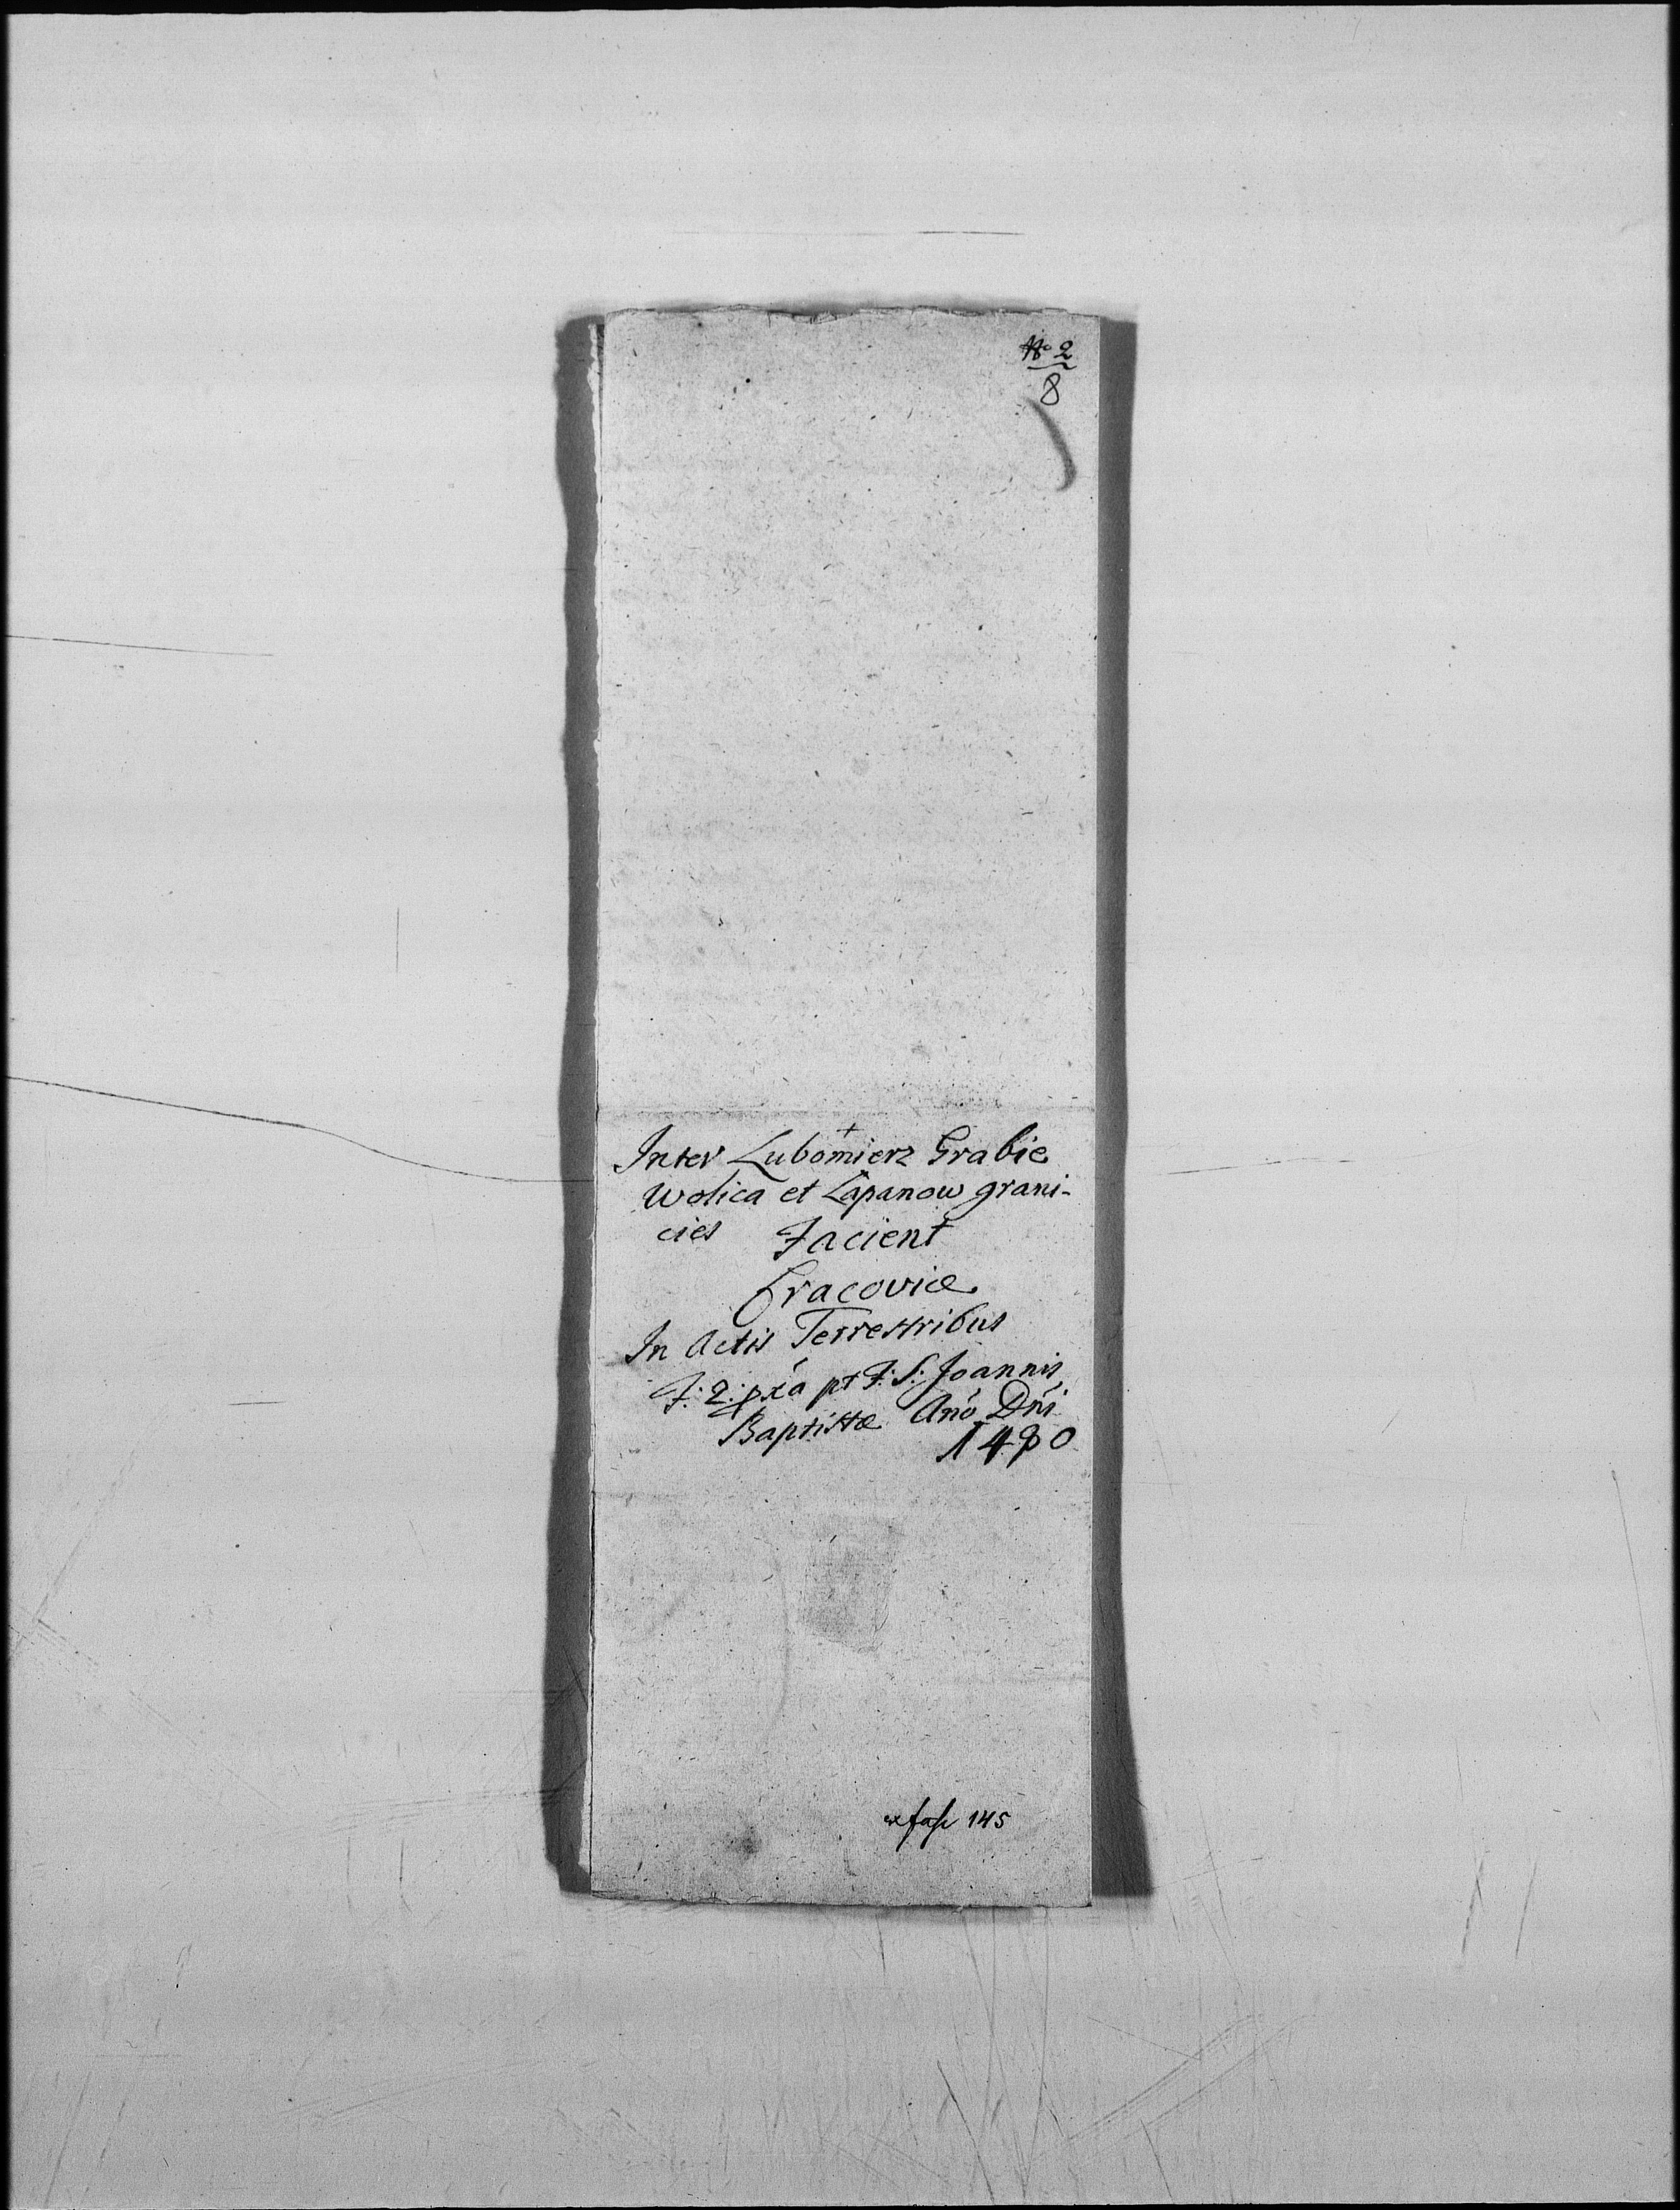 No 2
8
+
Inter Lubomierz Grabie
Wolica et Lapanow grani-
cies Facient
Cracoviæ
In Actis Terrestribus
F: 2: pxa pt F: S: Joannis
Baptistæ Ano Dni
1480
ex fasc 145